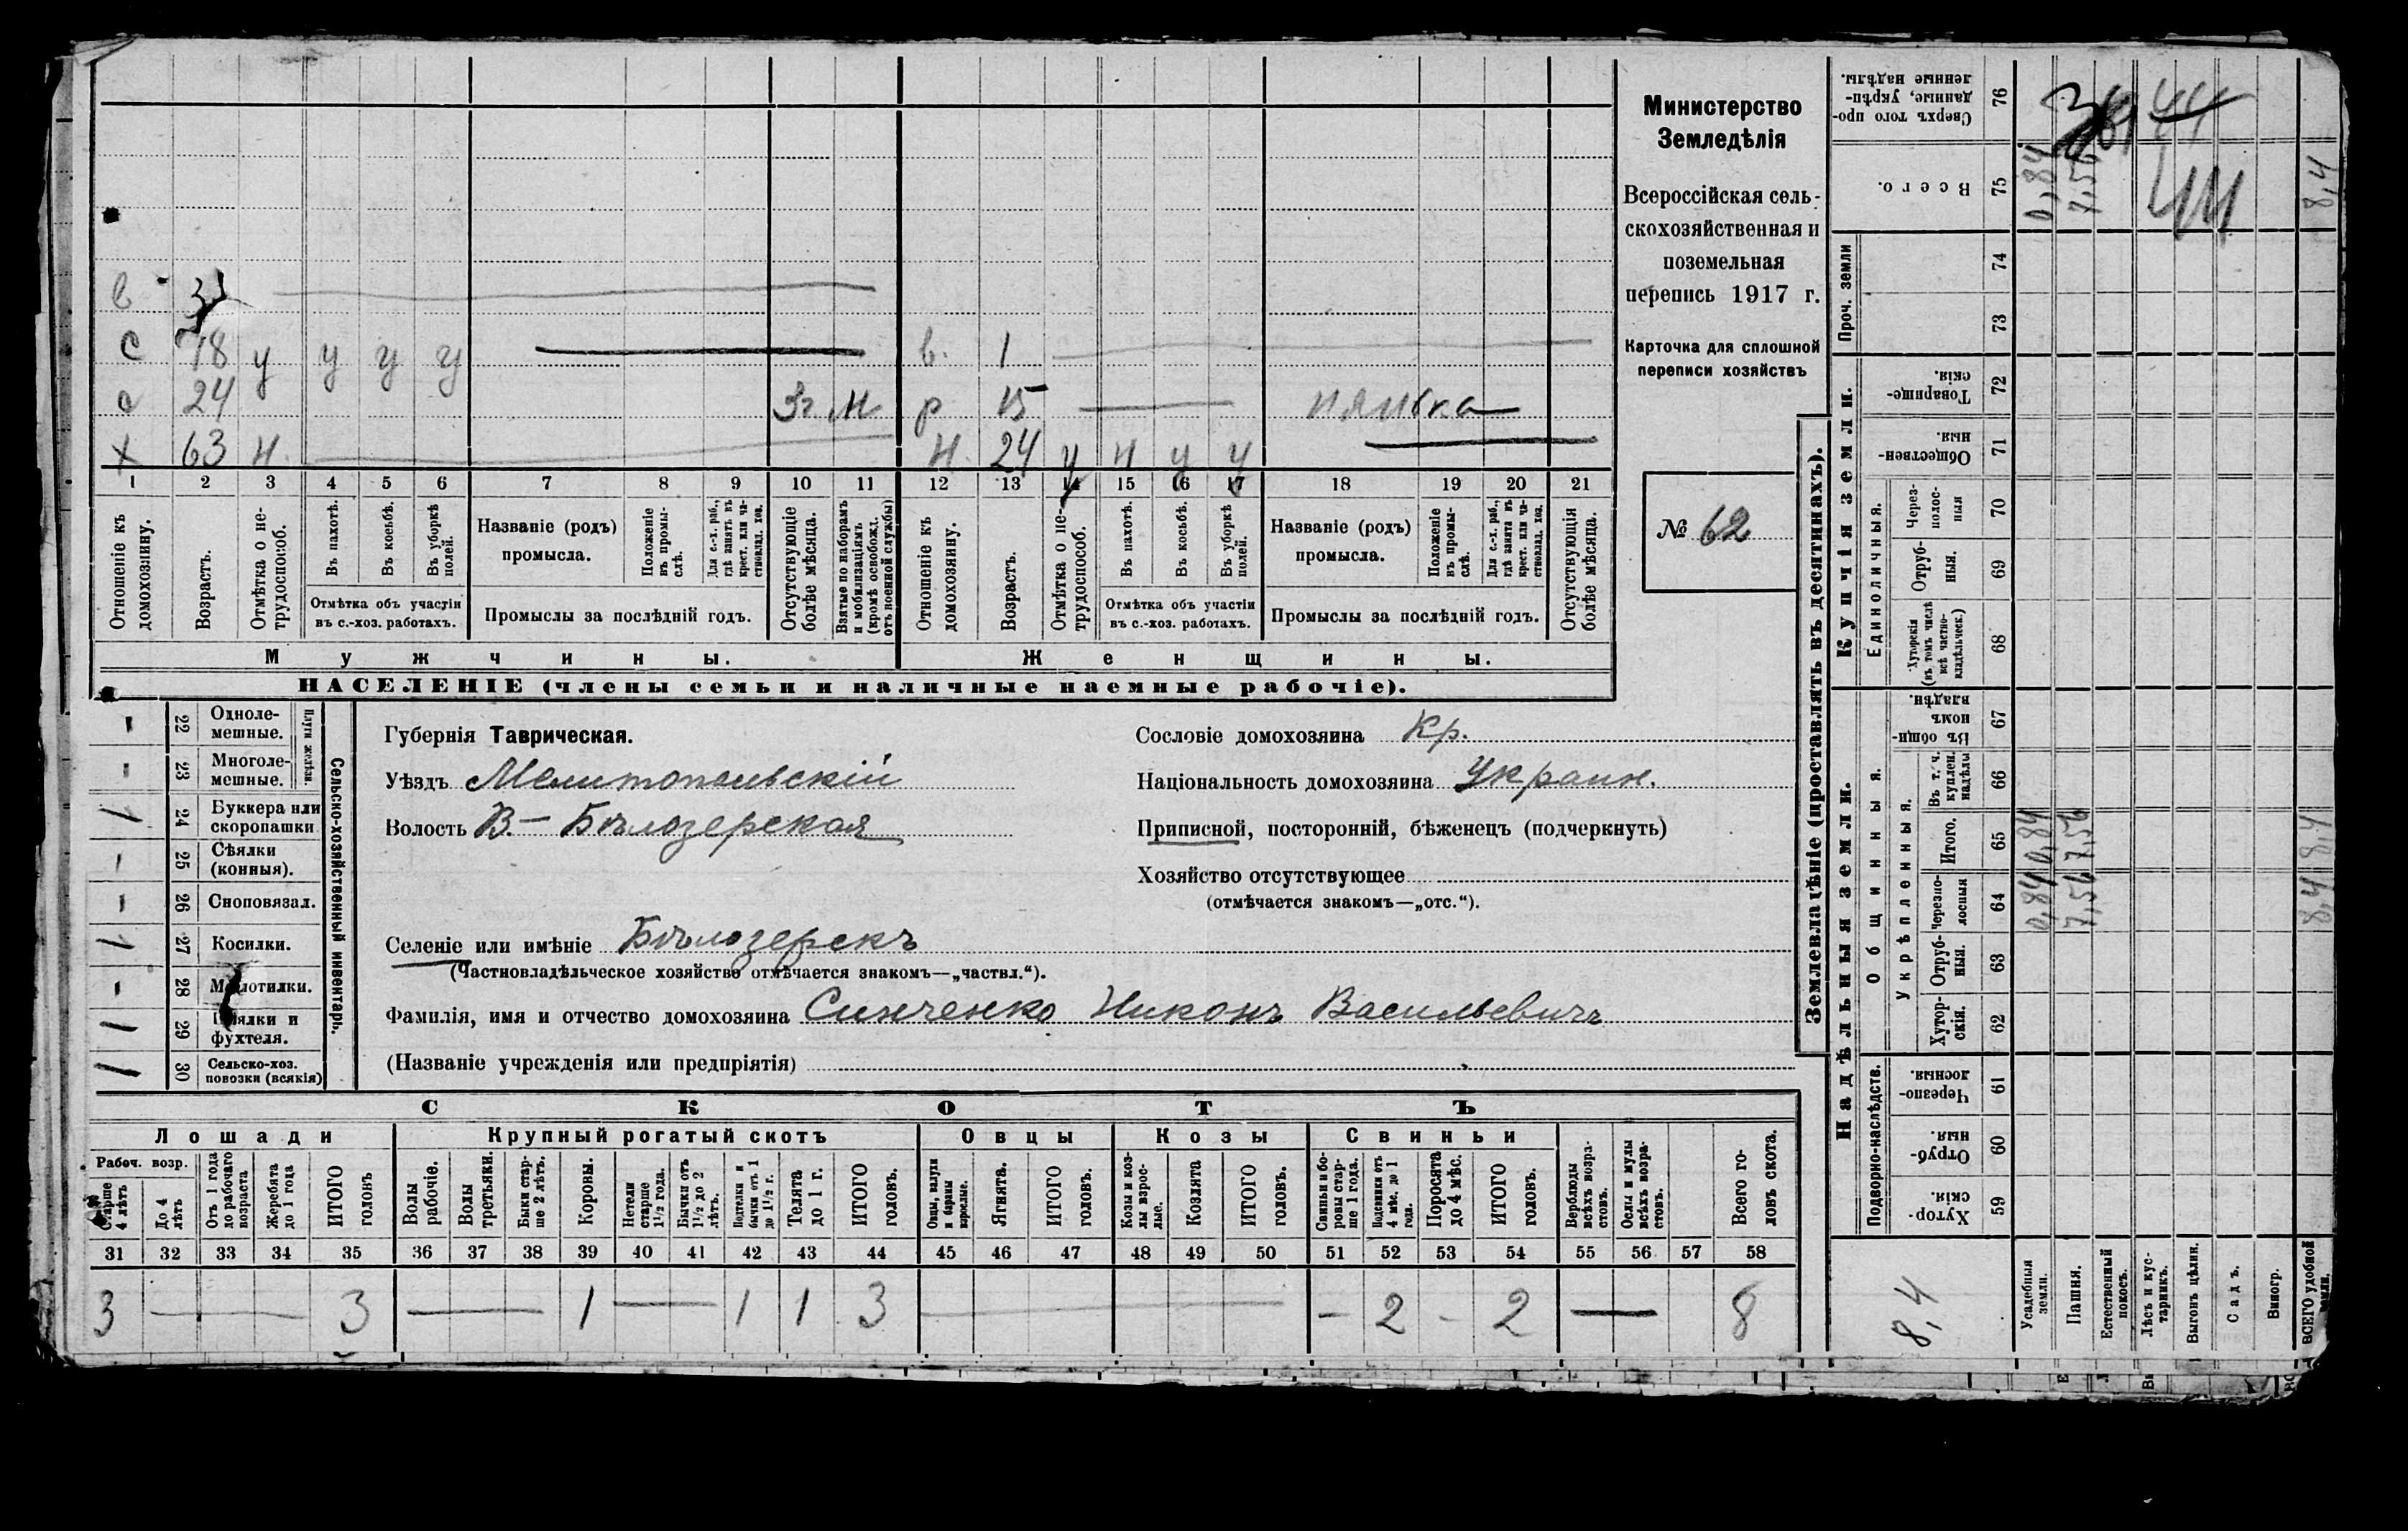 Министерство
Земледѣлія
Всероссійская сель-
скохозяйственная и
поземельная
перепись 1917 г.
Карточка для сплошной
переписи хозяйствъ
№ 62
в
с 18 у у у у в. 1
с 24 3г. м р 15 нянька
х 63 н. н. 24 у н у у
1 2 3 4 5 6 7 8 9 10 11 12 13 14 15 16 17 18 19 20 21
Отношеніе къ домохозяину.
Возрастъ.
Отмѣтка о не-трудоспособ.
Въ пахотѣ.
Въ косьбѣ.
Въ уборкѣ полей.
Отмѣтка объ участіи
въ с.-хоз. работахъ.
Названіе (родъ)
промысла.
Положеніе въ промы-слѣ.
Для с.-х. раб., гдѣ занятъ въ крест. или ча-стновлад. хоз.
Промыслы за послѣдній годъ.
Отсутствующіе болѣе мѣсяца.
Взятые по наборамъ и мобилизаціямъ (кромѣ освобожд. отъ военной службы)
Отношеніе къ домохозяину.
Возрастъ.
Отмѣтка о не-трудоспособ.
Въ пахотѣ.
Въ косьбѣ.
Въ уборкѣ полей.
Отмѣтка объ участіи
въ с.-хоз. работахъ.
Названіе (родъ)
промысла.
Положеніе въ промы-слѣ.
Для с.-х. раб., гдѣ занята въ крест. или ча-стновлад. хоз.
Промыслы за послѣдній годъ.
Отсутствующія болѣе мѣсяца.
Мужчины. Женщины.
НАСЕЛЕНІЕ (члены семьи и наличные наемные рабочіе).
Сельско-хозяйственный инвентарь.
Плуги желѣзн.
22 Одноле-
мешные.
23 Многоле-
мешные.
24 Буккера или
скоропашки
25 Сѣялки
(конныя).
26 Сноповязал.
27 Косилки.
28 Молотилки.
29 Вѣялки и
фухтеля.
30 Сельско-хоз.
повозки (всякія)
Губернія Таврическая.
Уѣздъ Мелитопольскій
Волость В.- Бѣлозерская
Селеніе или имѣніе Бѣлозерскъ
(Частновладѣльческое хозяйство отмѣчается знакомъ—„частвл.“).
Фамилія, имя и отчество домохозяина Синченко Никонъ Васильевичъ
(Названіе учрежденія или предпріятія)
Сословіе домохозяина Кр.
Національность домохозяина Украин.
Приписной, посторонній, бѣженецъ (подчеркнуть)
Хозяйство отсутствующее
(отмѣчается знакомъ—„отс.“).
СКОТЪ
Лошади Крупный рогатый скотъ Овцы Козы Свиньи
Рабоч. возр.
Старше 4 лѣтъ
До 4 лѣтъ
Отъ 1 года до рабочаго возраста
Жеребята до 1 года
ИТОГО головъ
Волы рабочіе.
Волы третьяки.
Быки стар-ше 2 лѣтъ.
Коровы.
Нетели старше 1½ года.
Бычки отъ 1½ до 2 лѣтъ.
Подтелки и бычки отъ 1 до 1½ г.
Телята до 1 г.
ИТОГО головъ.
Овцы, валухи и бараны взрослые.
Ягнята.
ИТОГО головъ.
Козы и коз-лы взрос-лые.
Козлята
ИТОГО головъ.
Свиньи и бо-ровы стар-ше 1 года.
Подсвинки отъ 4 мѣс. до 1 года.
Поросята до 4 мѣс.
ИТОГО головъ.
Верблюды всѣхъ возра-стовъ.
Ослы и мулы всѣхъ возра-стовъ.
Всего го-ловъ скота.
31 32 33 34 35 36 37 38 39 40 41 42 43 44 45 46 47 48 49 50 51 52 53 54 55 56 57 58
3 — 3 — 1 — 1 1 3 — - 2 - 2 — 8
Землевладѣніе (проставлять въ десятинахъ).
Надѣльныя земли. Купчія земли. Проч. земли
Подворно-наслѣдств. Общинныя. Укрѣпленныя. Единоличныя.
59 Хутор-скія.
60 Отруб-ныя.
61 Черезпо-лосныя.
62 Хутор-скія.
63 Отруб-ныя.
64 Черезпо-лосныя 0,84 7,56 8,4
65 Итого. 0,84 7,56 8,4
66 Въ т. ч. куплен. надѣлы
67 Въ общи-номъ владѣн.
68 Хуторскія (въ томъ числѣ всѣ частно-владѣльческ.)
69 Отруб-ныя.
70 Через-полос-ныя
71 Обществен-ныя.
72 Товарище-скія.
73
74
75 Всего. 0,84 7,56 8,4
76 Сверхъ того про-данные, укрѣп-ленные надѣлы.
44
8,4
Усадебныя земли.
Пашня.
Естественный покосъ.
Лѣсъ и кус-тарникъ.
Выгонъ цѣлин.
Садъ.
Виногр.
ВСЕГО удобной земли.